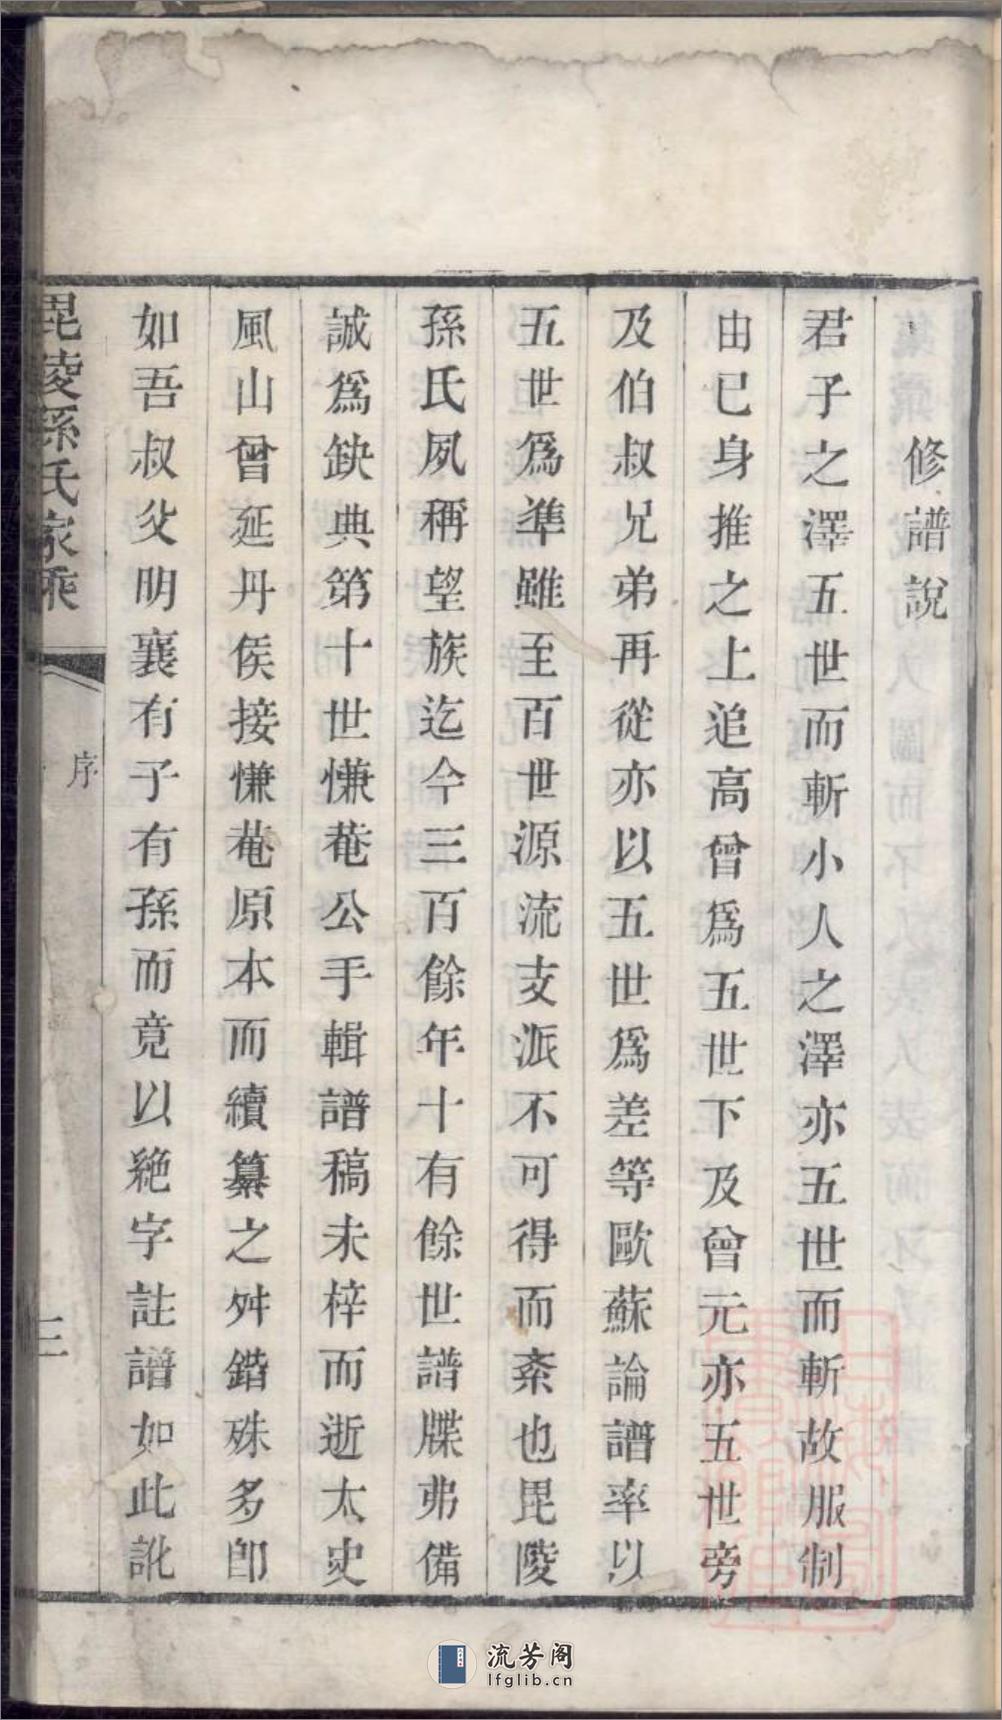 修譜說
君子之澤五世而斬小人之澤亦五世而斬故服制
由已身推之上追高曾爲五世下及曾元亦五世旁
及伯叔兄弟再從亦以五世爲差等歐蘇論譜率以
五世爲準雖至百世源流支派不可得而紊也毘陵
孫氏夙稱望族迄今三百餘年十有餘世譜牒弗備
誠爲缺典第十世慊菴公手輯譜稿未梓而逝太史
風山曾延丹侯接慊菴原本而續纂之舛錯殊多卽
如吾叔父明襄有子有孫而竟以絶字註譜如此訛
毘陵孫氏家乘
序
三
流芳阁
lfglib.cn